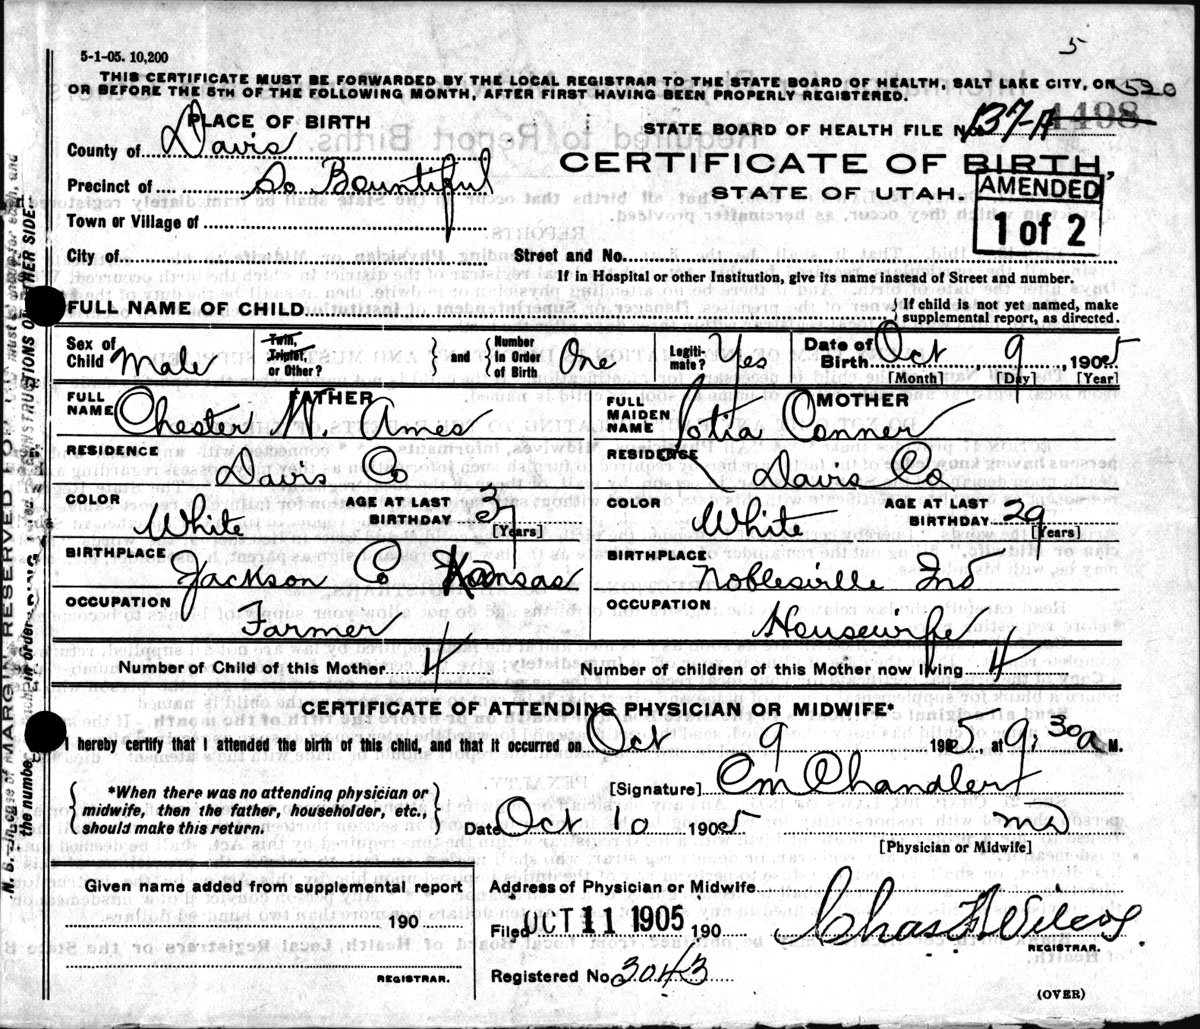 5
5-1-05. 10,200
THIS CERTIFICATE MUST BE FORWARDED BY THE LOCAL REGISTRAR TO THE STATE BOARD OF HEALTH, SALT LAKE CITY, ON
OR BEFORE THE 5TH OF THE FOLLOWING MONTH, AFTER FIRST HAVING BEEN PROPERLY REGISTERED.
520
PLACE OF BIRTH
STATE BOARD OF HEALTH FILE No. 137-A 1498
County of Davis
CERTIFICATE OF BIRTH,
Precinct of So Bountiful
STATE OF UTAH.
AMENDED
1 of 2
Town or Village of
City of Street and No.
If in Hospital or other Institution, give its name instead of Street and number.
FULL NAME OF CHILD
If child is not yet named, make
supplemental report, as directed.
Sex of Child Male Twin, Triplet, or Other? and Number in Order of Birth One Legiti-mate? Yes Date of Birth Oct 9 1905
[Month] [Day] [Year]
FATHER MOTHER
FULL NAME Chester W. Ames FULL MAIDEN NAME Lotia Conner
RESIDENCE Davis Co RESIDENCE Davis Co
COLOR White AGE AT LAST BIRTHDAY 37 [Years] COLOR White AGE AT LAST BIRTHDAY 29 [Years]
BIRTHPLACE Jackson Co Kansas BIRTHPLACE Noblesville Ind
OCCUPATION Farmer OCCUPATION Housewife
Number of Child of this Mother 4 Number of children of this Mother now living 4
CERTIFICATE OF ATTENDING PHYSICIAN OR MIDWIFE*
I hereby certify that I attended the birth of this child, and that it occurred on Oct 9 1905, at 9:30 a M.
[Signature] Om Chandler
*When there was no attending physician or
midwife, then the father, householder, etc.,
should make this return.
Date Oct 10 1905 md
[Physician or Midwife]
Given name added from supplemental report
190
REGISTRAR.
Address of Physician or Midwife
Filed OCT 11 1905 190 Chas H Wilcox
REGISTRAR.
Registered No. 3043
(OVER)